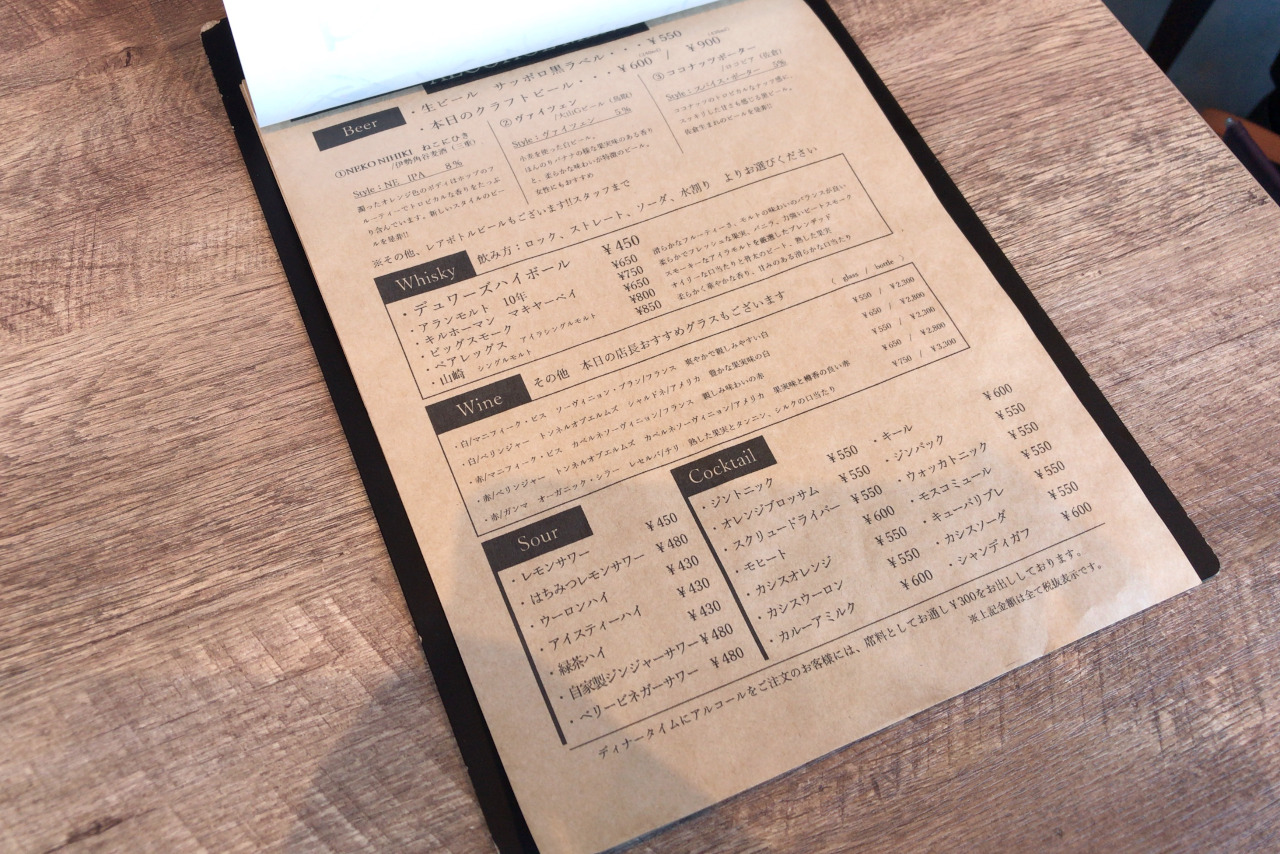 Beer
・生ビール　サッポロ黒ラベル・・・¥550
・本日のクラフトビール・・・¥600 / ¥900
①NEKO NIHIKI　ねこにひき
/伊勢角谷麦酒（三重）
Style：NE IPA　8％
濁ったオレンジ色のボディはホップのフ
ルーティーでトロピカルな香りをたっぷ
り含んでいます。新しいスタイルのビー
ルを是非!!
②ヴァイツェン
/大山Gビール（鳥取）
Style：ヴァイツェン　5％
小麦を使った白ビール。
ほんのりバナナの様な果実味のある香り
と、柔らかな味わいが特徴のビール。
女性にもおすすめ
③ココナッツポーター
/ロコビア（佐倉）
Style：スパイス・ポーター　5％
ココナッツのトロピカルなナッツ感に、
スッキリした甘さも感じる黒ビール。
佐倉生まれのビールを是非!!
※その他、レアボトルビールもございます!!スタッフまで
Whisky
飲み方：ロック、ストレート、ソーダ、水割り　よりお選びください
・デュワーズハイボール　¥450
・アランモルト　10年　¥650　滑らかなフルーティーさ、モルトの味わいのバランスが良い
・キルホーマン　マキヤーベイ　¥750　柔らかでフレッシュな果実、バニラ、力強いピートスモーク
・ビッグスモーク　¥650　スモーキーなアイラモルトを厳選したブレンデッド
・ベアレッグス　アイラシングルモルト　¥800　オイリーな口当たりと骨太のピート、熟した果実
・山崎　シングルモルト　¥850　柔らかく華やかな香り、甘みのある滑らかな口当たり
Wine
その他　本日の店長おすすめグラスもございます
（ glass / bottle ）
・白/マニフィーク・ビス　ソーヴィニョン・ブラン/フランス　爽やかで親しみやすい白　¥550 / ¥2,300
・白/ベリンジャー　トンネルオブエルムズ　シャルドネ/アメリカ　豊かな果実味の白　¥650 / ¥2,800
・赤/マニフィーク・ビス　カベルネソーヴィニョン/フランス　親しみ味わいの赤　¥550 / ¥2,300
・赤/ベリンジャー　トンネルオブエルムズ　カベルネソーヴィニョン/アメリカ　果実味と樽香の良い赤　¥650 / ¥2,800
・赤/ガンマ　オーガニック・シラー　レセルバ/チリ　熟した果実とタンニン、シルクの口当たり　¥750 / ¥3,300
Sour
・レモンサワー　¥450
・はちみつレモンサワー　¥480
・ウーロンハイ　¥430
・アイスティーハイ　¥430
・緑茶ハイ　¥430
・自家製ジンジャーサワー　¥480
・ベリービネガーサワー　¥480
Cocktail
・ジントニック　¥550
・オレンジブロッサム　¥550
・スクリュードライバー　¥550
・モヒート　¥600
・カシスオレンジ　¥550
・カシスウーロン　¥550
・カルーアミルク　¥600
・キール　¥600
・ジンバック　¥550
・ウォッカトニック　¥550
・モスコミュール　¥550
・キューバリブレ　¥550
・カシスソーダ　¥550
・シャンディガフ　¥600
ディナータイムにアルコールをご注文のお客様には、席料としてお通し¥300をお出ししております。
※上記金額は全て税抜表示です。